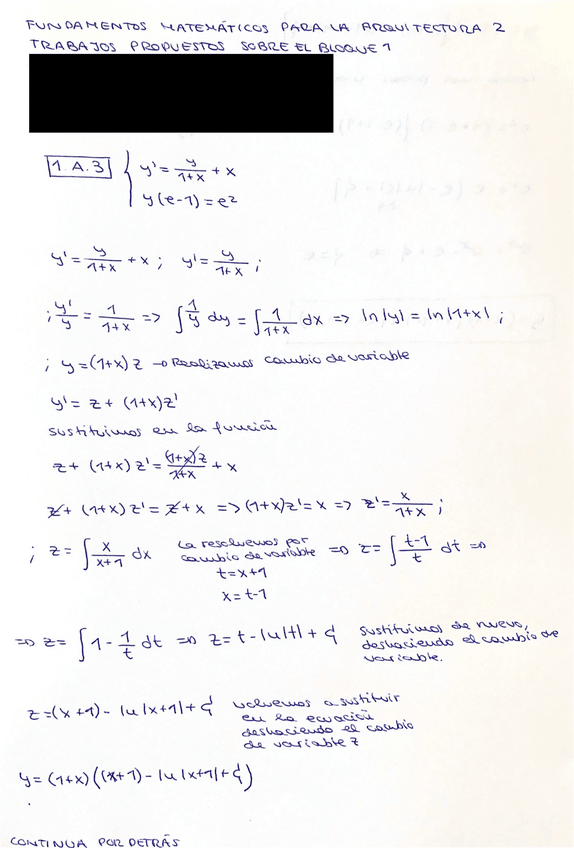 FUNDAMENTOS MATEMÁTICOS PARA LA ARQUITECTURA 2
TRABAJOS PROPUESTOS SOBRE EL BLOQUE 1
1.A.3 { y' = y/(1+x) + x
y(e-1) = e²
y' = y/(1+x) + x ; y' = y/(1+x) ;
; y'/y = 1/(1+x) => ∫ 1/y dy = ∫ 1/(1+x) dx => ln|y| = ln|1+x| ;
; y = (1+x) z → Realizamos cambio de variable
y' = z + (1+x)z'
sustituimos en la función
z + (1+x) z' = (1+x)z/(1+x) + x
z + (1+x) z' = z + x => (1+x)z' = x => z' = x/(1+x) ;
; z = ∫ x/(x+1) dx La resolvemos por cambio de variable => z = ∫ (t-1)/t dt =>
t = x+1
x = t-1
=> z = ∫ 1 - 1/t dt => z = t - ln|t| + C Sustituimos de nuevo, deshaciendo el cambio de variable.
z = (x+1) - ln|x+1| + C volvemos a sustituir en la ecuación deshaciendo el cambio de variable z
y = (1+x)((x+1) - ln|x+1| + C)
CONTINUA POR DETRÁS